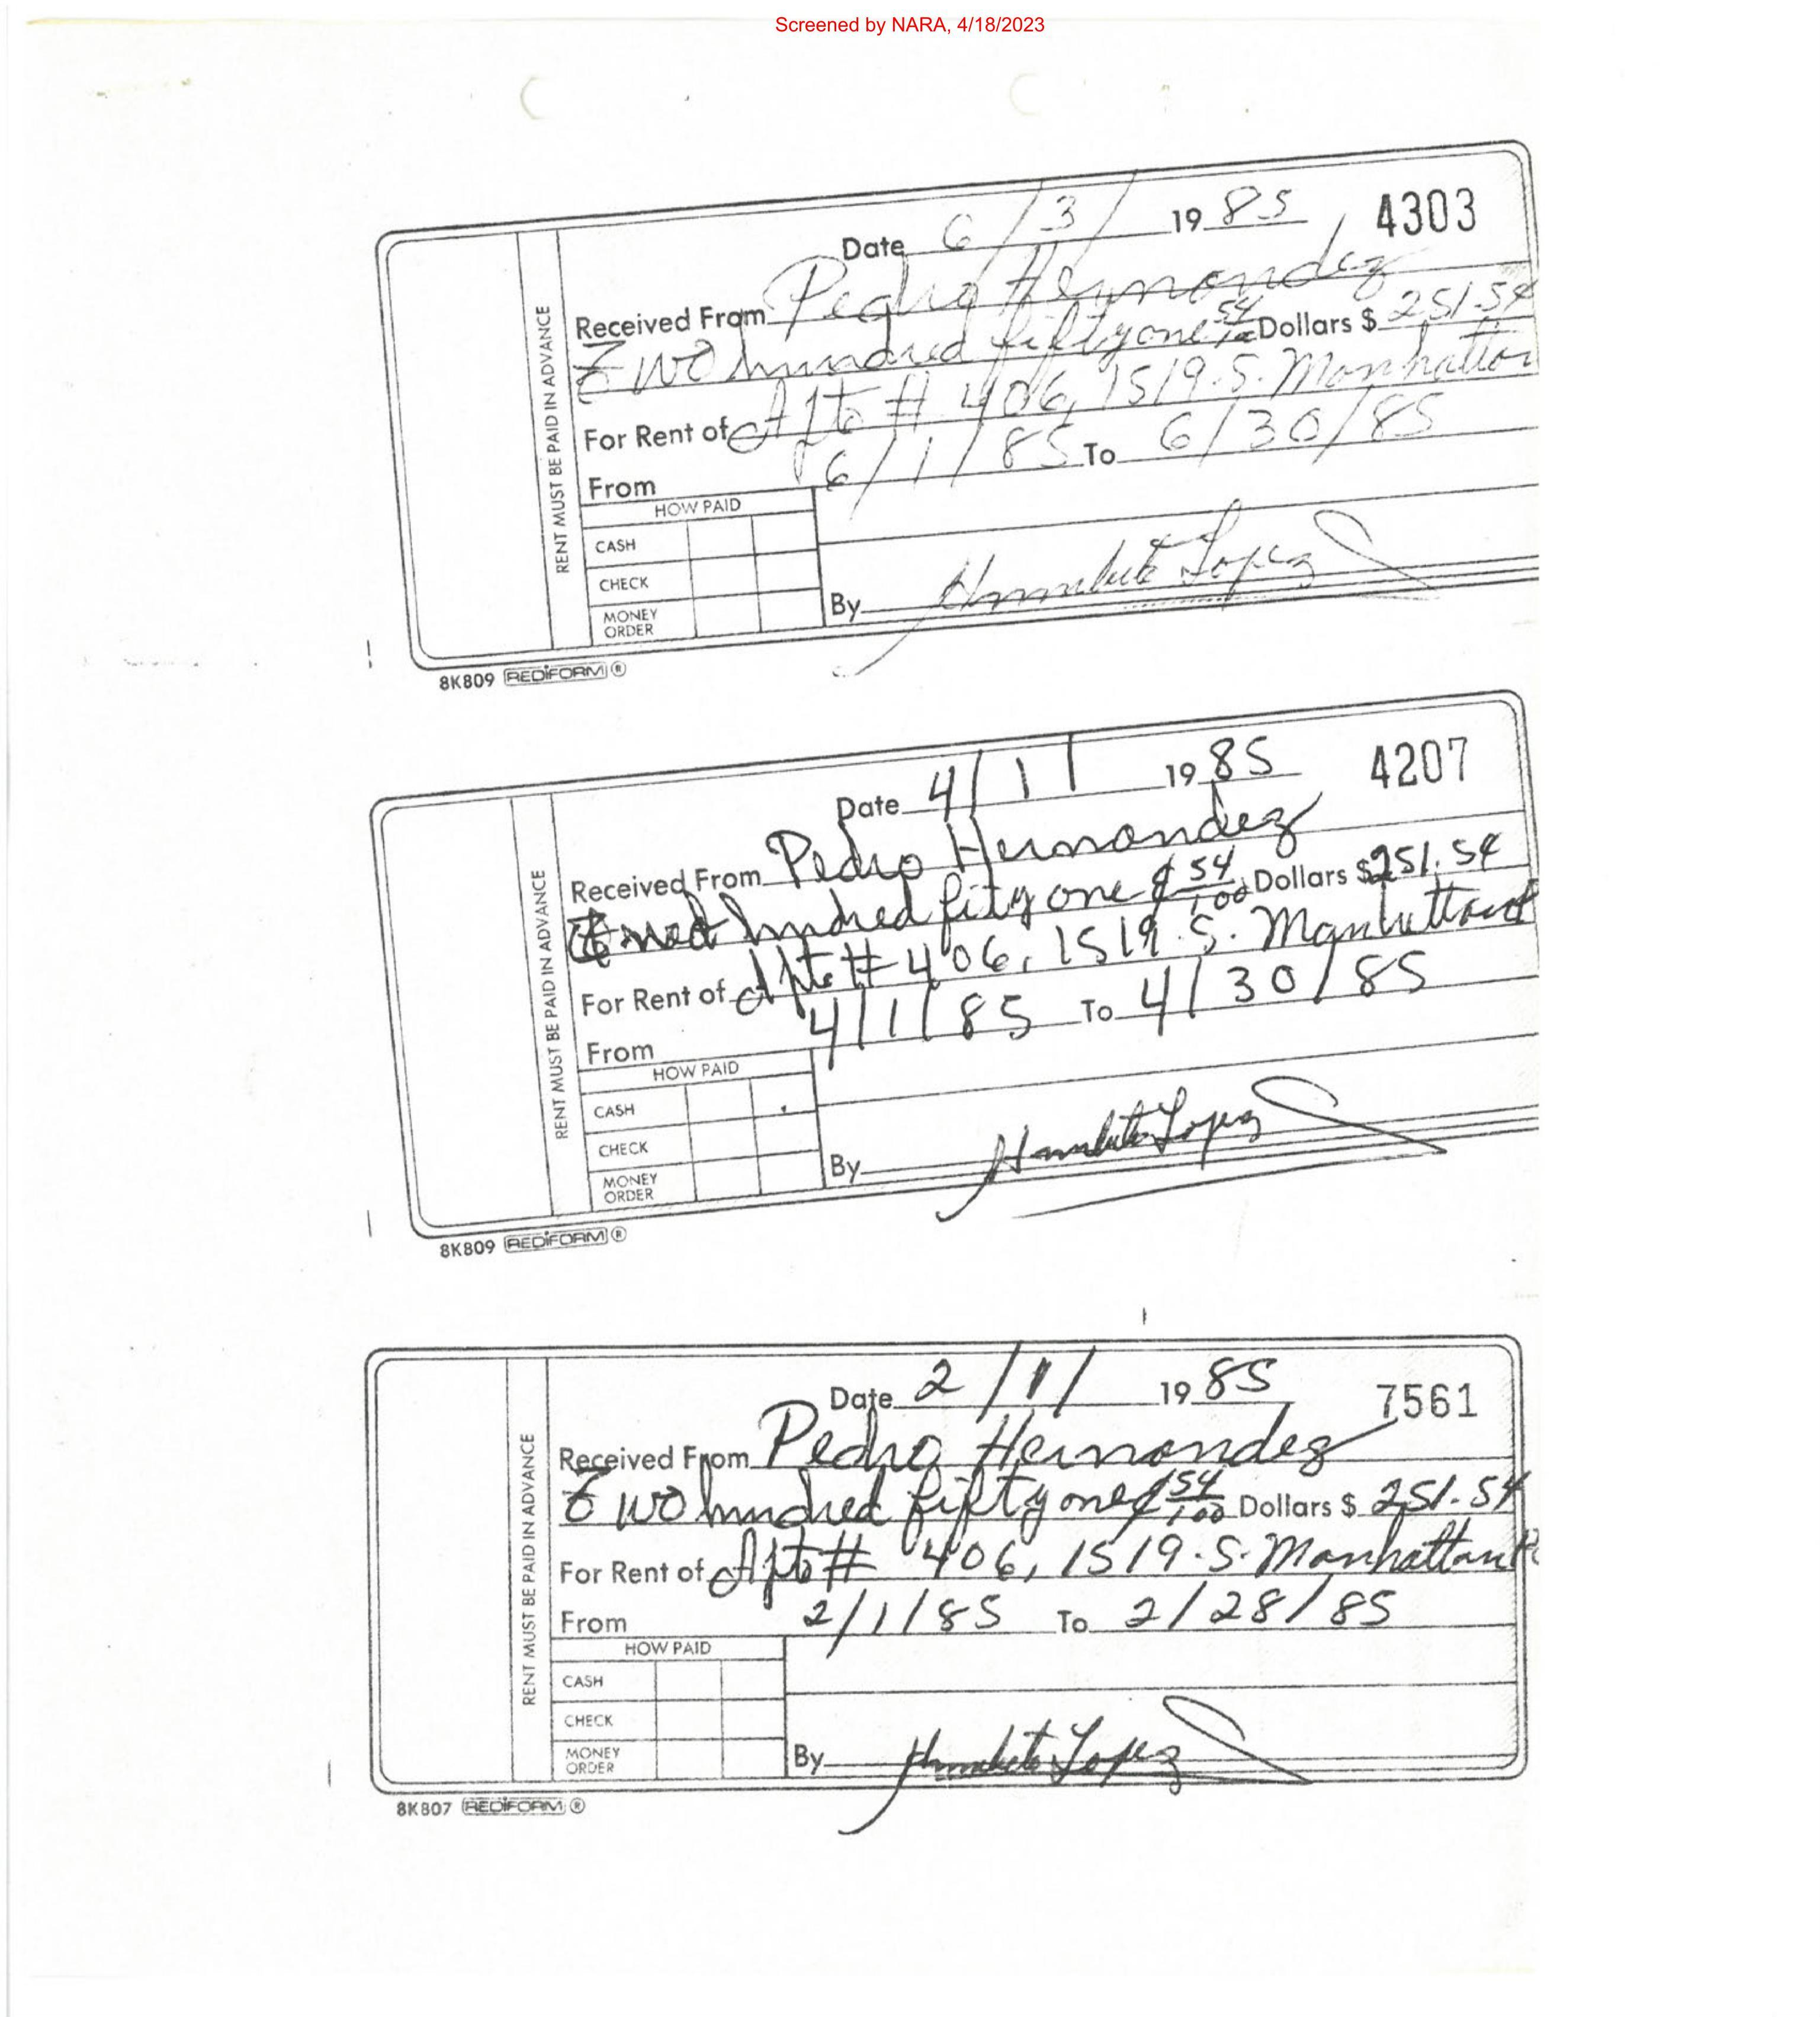 Screened by NARA, 4/18/2023
Date 6/3/ 1985 4303
Received From Pedro Hernandez
Two hundred fifty one 54/100 Dollars $ 251.54
For Rent of Apto # 406, 1519 S. Manhattan
From 6/1/85 To 6/30/85
RENT MUST BE PAID IN ADVANCE
HOW PAID
CASH
CHECK
MONEY ORDER
By Humberto Lopez
8K809 REDIFORM ®
Date 4/1/ 1985 4207
Received From Pedro Hernandez
hundred fity one & 54/100 Dollars $251.54
For Rent of Apto # 406, 1519 S. Manhattan
From 4/1/85 To 4/30/85
RENT MUST BE PAID IN ADVANCE
HOW PAID
CASH
CHECK
MONEY ORDER
By Humberto Lopez
8K809 REDIFORM ®
Date 2/1/ 1985 7561
Received From Pedro Hernandez
Two hundred fifty one & 54/100 Dollars $ 251.54
For Rent of Apto # 406, 1519 S. Manhattan
From 2/1/85 To 2/28/85
RENT MUST BE PAID IN ADVANCE
HOW PAID
CASH
CHECK
MONEY ORDER
By Humberto Lopez
8K807 REDIFORM ®